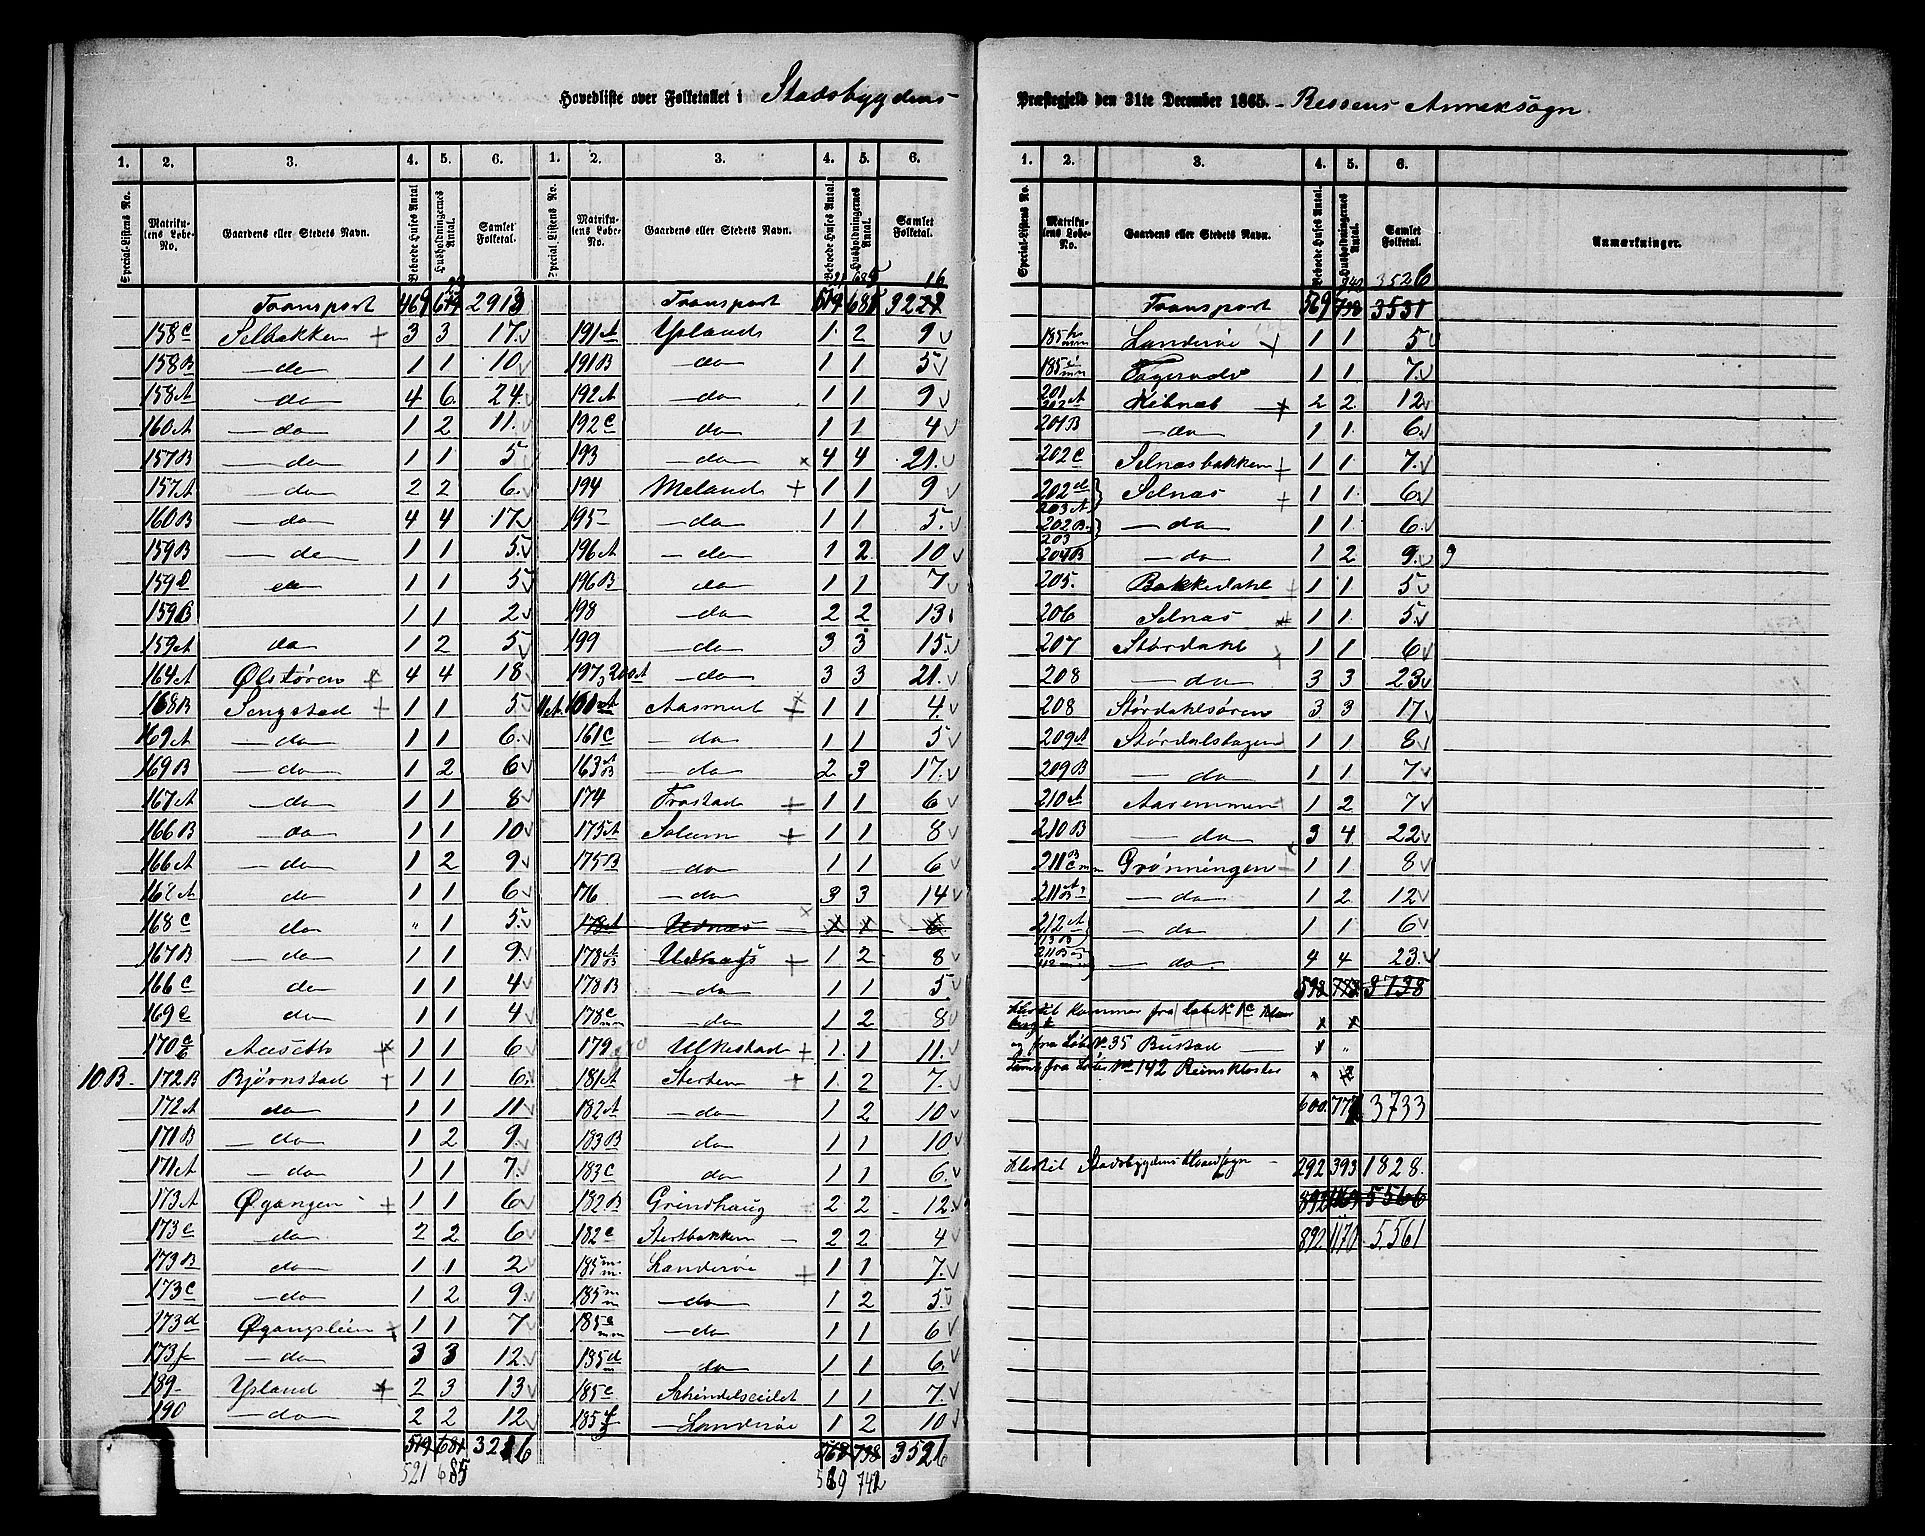 Hovedliste over Folketallet i Stadsbygdens
1. 2. 3. 4. 5. 6. 1. 2. 3. 4. 5. 6.
Special-Listens No. Matrikulens Løbe-No. Gaardens eller Stedets Navn. Beboede Huses Antal Husholdningernes Antal. Samlet Folketal.
Transport 469 2913
158c Selbakken + 3 3 17
158B do 1 1 10
158A do 4 6 24
160A do 1 2 11
157B do 1 1 5
157A do 2 2 6
160B do 4 4 17
159B do 1 1 5
159 do 1 1 5
159B 1 1 2
159A do 1 2 5
164A Ølstøren + 4 4 18
168B Sengstad + 1 1 5
169A do 1 1 6
169B do 1 2 6
167A do 1 1 8
166B do 1 1 10
166A do 1 2 9
168A do 1 1 6
168c do " 1 5
167B do 1 1 9
166c do 1 1 4
169c do 1 1 4
170 Aasetto + 1 1 6
10B. 172B Bjørnstad + 1 1 6
172A do 1 1 11
171B do 1 2 9
171A do 1 1 7
173A Øgangen + 1 1 6
173c do 2 2 6
173B do 1 1 2
173c do 1 2 9
173d Øgangsleien + 1 1 7
173f do 3 3 12
189 Ypland + 2 3 13
190 do 2 2 12
519 681 3216
521 685
Special Listens No. Matrikulens Løbe-No. Gaardens eller Stedets Navn. Beboede Huses Antal Husholdningernes Antal. Samlet Folketal.
Transport 519 685
191A Yplands 1 2 9
191B do 1 1 5
192A do 1 1 9
192c do 1 1 4
193 do 4 4 21
194 Meland + 1 1 9
195 do 1 1 5
196A do 1 2 10
196B do 1 1 7
198 do 2 2 13
199 do 3 3 15
197, 200A do 3 3 21
11A. Aasmul + 1 1 4
161c do 1 1 5
163 do 2 3 17
174 Frostad + 1 1 6
175A Solem + 1 1 8
175B do 1 1 6
176 do 3 3 14
178A Udnæs
178 + 1 2 8
178B do 1 1 5
178c do 1 2 8
179 Ulkestad + 1 1 11
181A Sterten + 1 2 7
182A do 1 2 10
183B do 1 1 10
183c do 1 1 6
182B Grindhaug 2 2 12
182c Stertbakken 2 2 4
185 Landerøe + 1 1 7
185 do 1 2 5
185 do 1 1 6
185d do 1 1 6
185c 1 1 7
185 Landerøe 1 2 10
568 738 3526
569 742
Præstegjeld den 31te December 1865. Rissens Annexsogn
1. 2. 3. 4. 5. 6.
Special-Listens No. Matrikulens Løbe-No. Gaardens eller Stedets Navn. Beboede Huses Antal Husholdningernes Antal. Samlet Folketal. Anmærkninger.
742 3526
Transport 569 738 3531
185 Landerøe + 1 1 5
185 Fagerodr 1 1 7
201 202 A + 2 2 12
201B do 1 1 6
202c Selnæsbakken + 1 1 7
202d 203A Selnæs + 1 1 6
202B 203 do 1 1 6
204B do 1 2 9 9
205. Bakkedahl 1 1 5
206 Selnæs + 1 1 5
207 Størdahl + 1 1 6
208 do 3 3 23
208 Størdahlsøren 3 3 17
209A Størdalshagen 1 1 8
209B do 1 1 7
210A Aaremmen 1 2 7
210B do 3 4 22
211 Grønningen 1 1 8
211 do 1 2 12
212A do 1 1 6
do 4 4 23
598 3738
Hertil kommer fra Løbe No 1c
og fra Løbe No 35 Bustad
Samt fra Løbe No 142 Reinskloster " 2
600 777 3733
Hertil Stadsbygdens Hovedsogn 292 393 1828
892 1169 5566
892 1170 5561